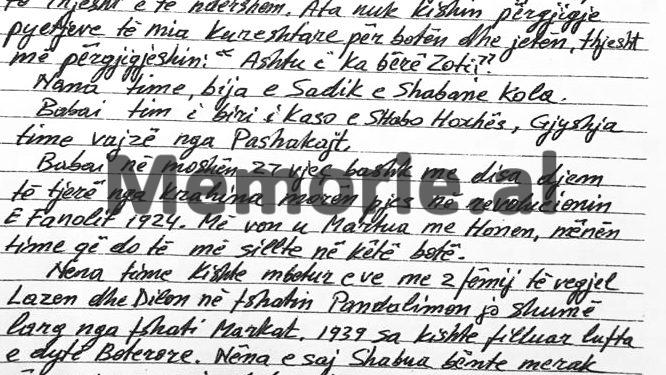 të thjesht e të ndershëm. Ata nuk kishin përgjigje
pyetjeve të mia kureshtare për botën dhe jetën, thjesht
më përgjigjeshin: "Ashtu i ka bërë Zoti".
Nana time, bija e Sadik e Shabane Kola.
Babai tim i biri i Kaso e Shabo Hoxhës, Gjyshja
time vajzë nga Pashakajt.
Babai në moshën 27 vjeç bashk me disa djem
të tjerë nga krahina morën pjes në revolucionin
E Fanolit 1924. Më von u Martua me Honen, nënën
time që do të më sillte në këtë botë.
Nëna time kishte mbetur e ve me 2 fëmij të vegjel
Lazen dhe Dilon në fshatin Pandalimon jo shumë
larg nga fshati Markat. 1939 sa kishte filluar lufta
e dytë Botërore. Nëna e saj Shabua bënte merak
Memorie.al